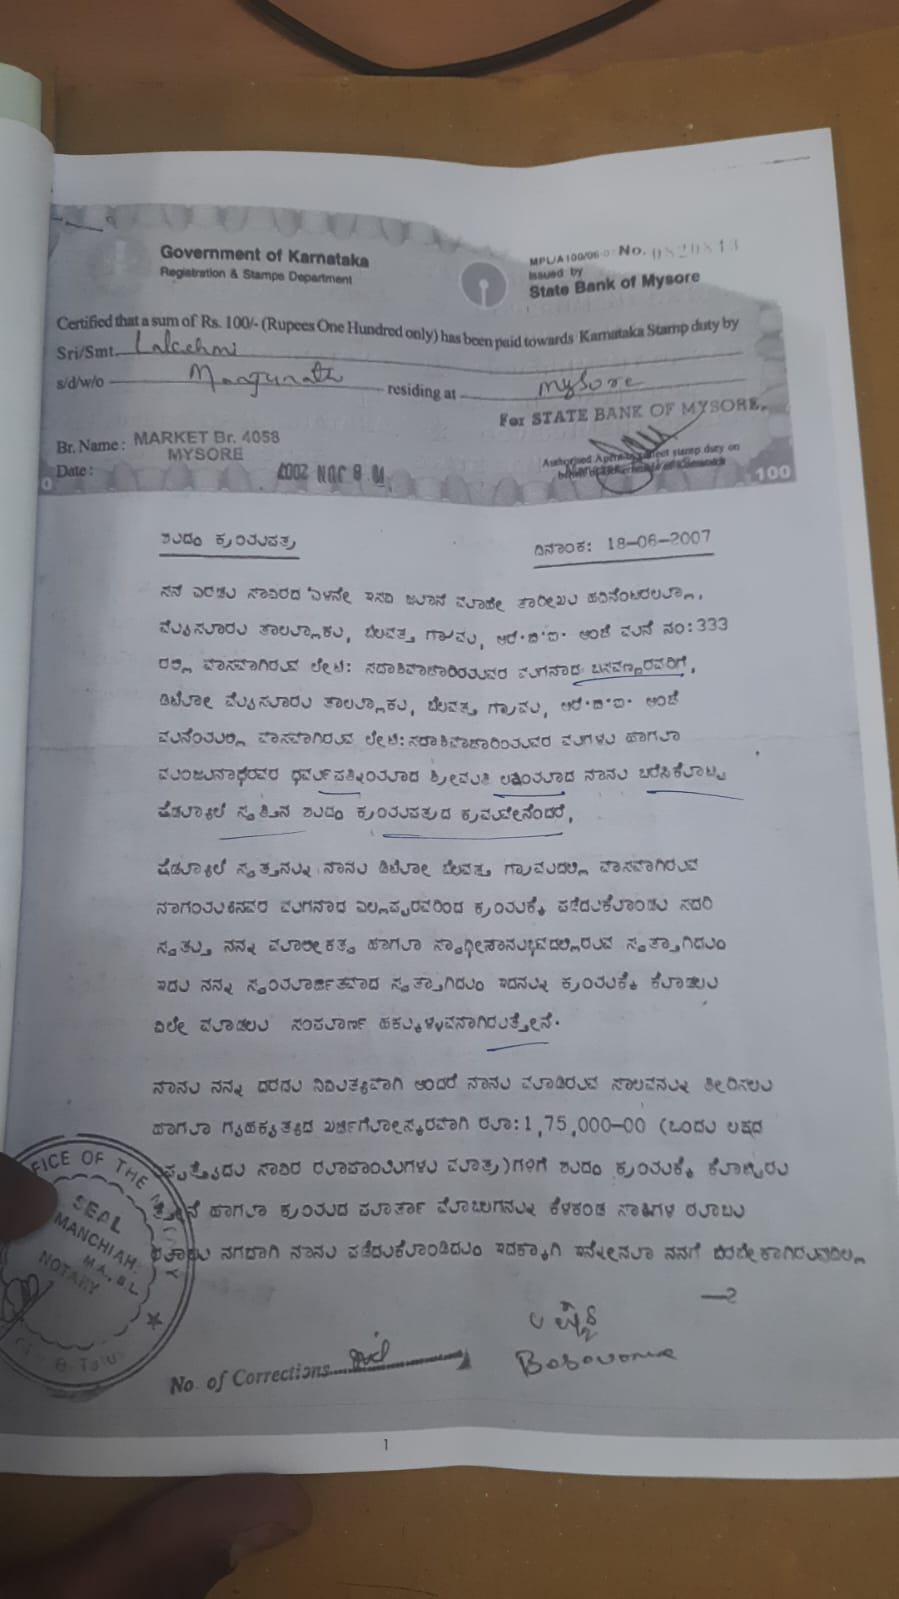 Government of Karnataka
Registration & Stamps Department
MPL/A 100/06 No. 0820843
Issued by
State Bank of Mysore
Certified that a sum of Rs. 100/- (Rupees One Hundred only) has been paid towards Karnataka Stamp duty by
Sri/Smt. Lakshmi
s/d/w/o Manjunath residing at Mysore
For STATE BANK OF MYSORE.
Br. Name : MARKET Br. 4058
MYSORE
Authorised stamp duty on
Date :
100
ಶುದ್ಧ ಕ್ರಯಪತ್ರ
ದಿನಾಂಕ: 18-06-2007
ಸನೆ ಎರಡು ಸಾವಿರದ ಏಳನೇ ಇಸವಿ ಜೂನ್ ಮಾಹೇ ತಾರೀಖು ಹದಿನೆಂಟರಲ್ಲೂ,
ಮೈಸೂರು ತಾಲ್ಲೂಕು, ಬೆಲವತ್ತ ಗ್ರಾಮ, ಆರ್.ಬಿ.ಐ. ಅಂಚೆ ಮನೆ ನಂ:333
ರಲ್ಲಿ ವಾಸವಾಗಿರುವ ಲೇಟ್: ಸದಾಶಿವಾಚಾರಿಯವರ ಮಗನಾದ ಬಸವಣ್ಣರವರಿಗೆ,
ಡಿಟೋ ಮೈಸೂರು ತಾಲ್ಲೂಕು, ಬೆಲವತ್ತ ಗ್ರಾಮ, ಆರ್.ಬಿ.ಐ. ಅಂಚೆ
ಮನೆಯಲ್ಲಿ ವಾಸವಾಗಿರುವ ಲೇಟ್:ಸದಾಶಿವಾಚಾರಿಯವರ ಮಗಳು ಹಾಗೂ
ಮಂಜುನಾಥರವರ ಧರ್ಮಪತ್ನಿಯಾದ ಶ್ರೀಮತಿ ಲಕ್ಷ್ಮಿಯಾದ ನಾನು ಬರೆಸಿಕೊಟ್ಟ
ಷೆಡ್ಯೂಲ್ ಸ್ವತ್ತಿನ ಶುದ್ಧ ಕ್ರಯಪತ್ರದ ಕ್ರಮವೇನೆಂದರೆ,
ಷೆಡ್ಯೂಲ್ ಸ್ವತ್ತನ್ನು ನಾನು ಡಿಟೋ ಬೆಲವತ್ತ ಗ್ರಾಮದಲ್ಲಿ ವಾಸವಾಗಿರುವ
ನಾಗಯ್ಯನವರ ಮಗನಾದ ಎಲ್ಲಪ್ಪರವರಿಂದ ಕ್ರಯಕ್ಕೆ ಪಡೆದುಕೊಂಡು ಸದರಿ
ಸ್ವತ್ತು ನನ್ನ ಮಾಲೀಕತ್ವ ಹಾಗೂ ಸ್ವಾಧೀನಾನುಭವದಲ್ಲಿರುವ ಸ್ವತ್ತಾಗಿದ್ದು
ಇದು ನನ್ನ ಸ್ವಯಾರ್ಜಿತವಾದ ಸ್ವತ್ತಾಗಿದ್ದು ಇದನ್ನು ಕ್ರಯಕ್ಕೆ ಕೊಡಲು
ವಿಲೇ ಮಾಡಲು ಸಂಪೂರ್ಣ ಹಕ್ಕುಳ್ಳವನಾಗಿರುತ್ತೇನೆ.
ನಾನು ನನ್ನ ದರದು ನಿಮಿತ್ಯವಾಗಿ ಅಂದರೆ ನಾನು ಮಾಡಿರುವ ಸಾಲವನ್ನು ತೀರಿಸಲು
ಹಾಗೂ ಗೃಹಕೃತ್ಯದ ಖರ್ಚಿಗೋಸ್ಕರವಾಗಿ ರೂ:1,75,000-00 (ಒಂದು ಲಕ್ಷದ
ಪ್ಪತ್ತೈದು ಸಾವಿರ ರೂಪಾಯಿಗಳು ಮಾತ್ರ)ಗಳಿಗೆ ಶುದ್ಧ ಕ್ರಯಕ್ಕೆ ಕೊಟ್ಟಿರು
ತ್ತೇನೆ ಹಾಗೂ ಕ್ರಯದ ಪೂರ್ತಾ ಮೊಬಲಗನ್ನು ಕೆಳಕಂಡ ಸಾಕ್ಷಿಗಳ ರೂಬು
ರೂಬು ನಗದಾಗಿ ನಾನು ಪಡೆದುಕೊಂಡಿದ್ದು ಇದಕ್ಕಾಗಿ ಇನ್ನೇನೂ ನನಗೆ ಬರಬೇಕಾಗಿರುವುದಿಲ್ಲ
—2
OFFICE OF THE NOTARY
SEAL
MANCHIAH.
M.A., B.L.
NOTARY
No. of Corrections nil
1